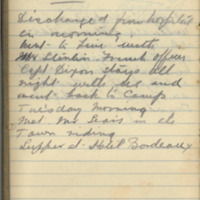 Discharged from hospital
in morning
Went to live with
Mr French officer
Capt Dixon stays all
night with us and
went back to Camp
Tuesday Morning.
Met Mr Sears in the
Town riding
Supper at Hotel Bordeaux